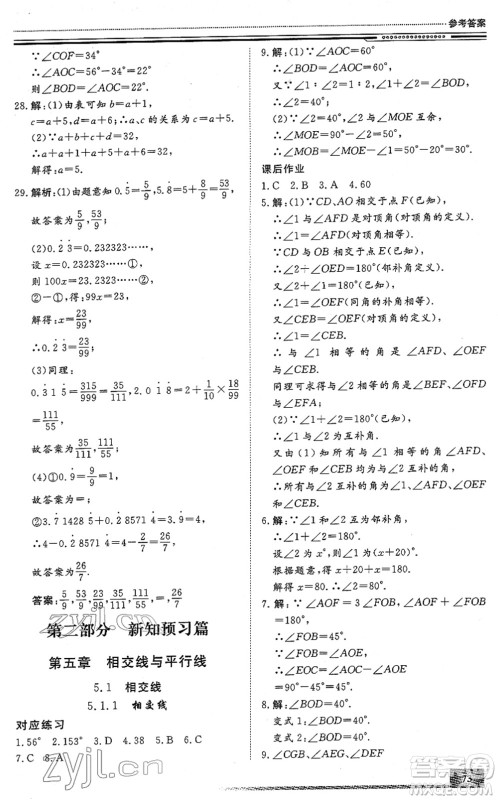 参考答案
∵∠COF=34°
∴∠AOC=56°-34°=22°
则∠BOD=∠AOC=22°.
28.解:(1)由表可知 b=a+1,
c=a+5,d=a+6;∴a、c 的关系为 c=a+5.
(2)∵a+b+c+d=32
∴a+a+1+a+5+a+6=32
解得:a=5.
29.解析:(1)由题意知 0.5̇=5/9,5.8̇=53/9,
故答案为5/9,53/9.
(2)0.2̇3̇=0.232323……,
设 x=0.232323……①,
则 100x=23.2323……②,
②-①,得:99x=23,
解得:x=23/99,
∴0.2̇3̇=23/99.
(3)同理:
0.3̇15̇=315/999=35/111,2.01̇8̇=2+1/10×18/99=
111/55,
故答案为35/111,111/55.
(4)①0.9̇=9/9=1
故答案为:=
②3.7̇14285̇+0.2̇85714̇=3.9̇=4
∴4-0.2̇85714̇=4-2/7=26/7
故答案为26/7.
答案:5/9,53/9,23/99,35/111,111/55,=,26/7
第二部分 新知预习篇
第五章 相交线与平行线
5.1 相交线
5.1.1 相交线
对应练习
1.56° 2.153° 3.D 4.38 5.B 6.D
7.C 8.A
9.解:(1)∵∠AOC=60°
∴∠BOD=∠AOC=60°
又∵∠1∶∠2=1∶2,∠1+∠2=∠BOD,
∴∠2=40°;
(2)∵∠2=40°,∠2 与∠MOE 互余,
∴∠MOE=90°-∠2=50°
又∵∠AOE 与∠MOE 互余,
∴∠AOE=90°-∠MOE=90°-50°=40°.
课后作业
1.C 2.B 3.A 4.60
5.解:(1)∵CD、AO 相交于点 F(已知),
∴∠1 与∠AFD 是对顶角(对顶角的定义).
∴∠1=∠AFD(对顶角相等).
∵CD 与 OB 相交于点 E(已知),
∴∠2+∠OED=180°(邻补角定义).
又∵∠1+∠2=180°(已知),
∴∠1=∠OEF(同角的补角相等).
又∠CEB=∠OEF(对顶角的定义),
∴∠1=∠CEB.
∴与∠1 相等的角是∠AFD、∠OEF
与∠CEB.
同理可求得与∠2 相等的角是∠OED
与∠EFA;
(2)∵∠1+∠2=180°(已知),
∴∠1 与∠2 互为补角.
又由(1)知所有与∠1 相等的角为∠AFD、
∠OEF 和∠CEB.
∴所有与∠2 互补的角有∠1、∠AFD、
∠OEF 和∠CEB.
6.解:∵∠1 与∠2 互为邻补角,
∴∠1+∠2=180°
设∠2 为 x°,则∠1 为(x+20)°.
根据题意,得 x+(x+20)=180
解得 x=80.
∴∠2=80°
7.解:∵∠AOF=3∠FOB,∠AOF+
∠FOB=180°
∴∠FOB=45°
∵∠AOE=∠FOB
∴∠AOE=45°
∵∠AOC=90°
∴∠EOC=∠AOC-∠AOE
=90°-45°=45°
8.解:∠AOC=∠BOD.
变式 1:∠AOC=∠BOD.
变式 2:∠AOC=∠BOD.
9.∠CGB、∠AEG、∠DEF
zyjl.cn
zyjl.cn